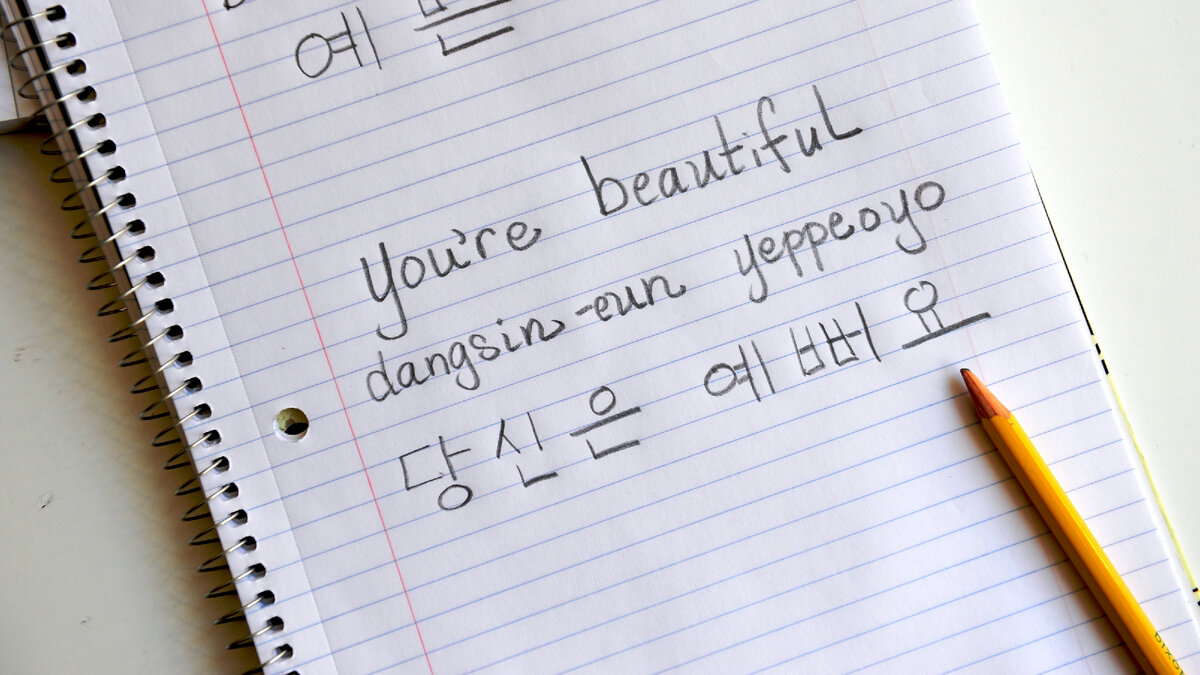 예쁜
You're beautiful
dangsin-eun yeppeoyo
당신은 예뻐요